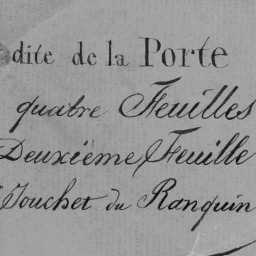 dite de la Porte
quatre Feuilles
Deuxième Feuille
Touchet du Ranquin